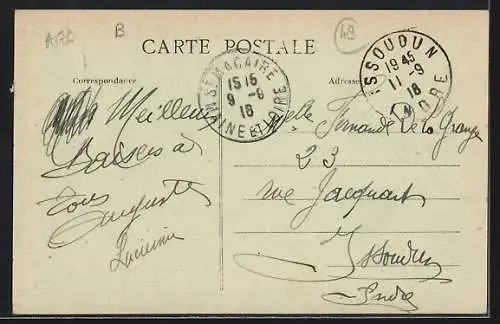 A172
B
49
CARTE POSTALE
Correspondance
Adresse
ST MACAIRE
15 15
9 -9
18
MAINE ET LOIRE
ISSOUDUN
19 45
11 -9
18
INDRE
Meilleurs
Baisers à
tous
Auguste
Lucienne
Melle Fernande de la Grange
23
rue Jacquart
Issoudun
Indre